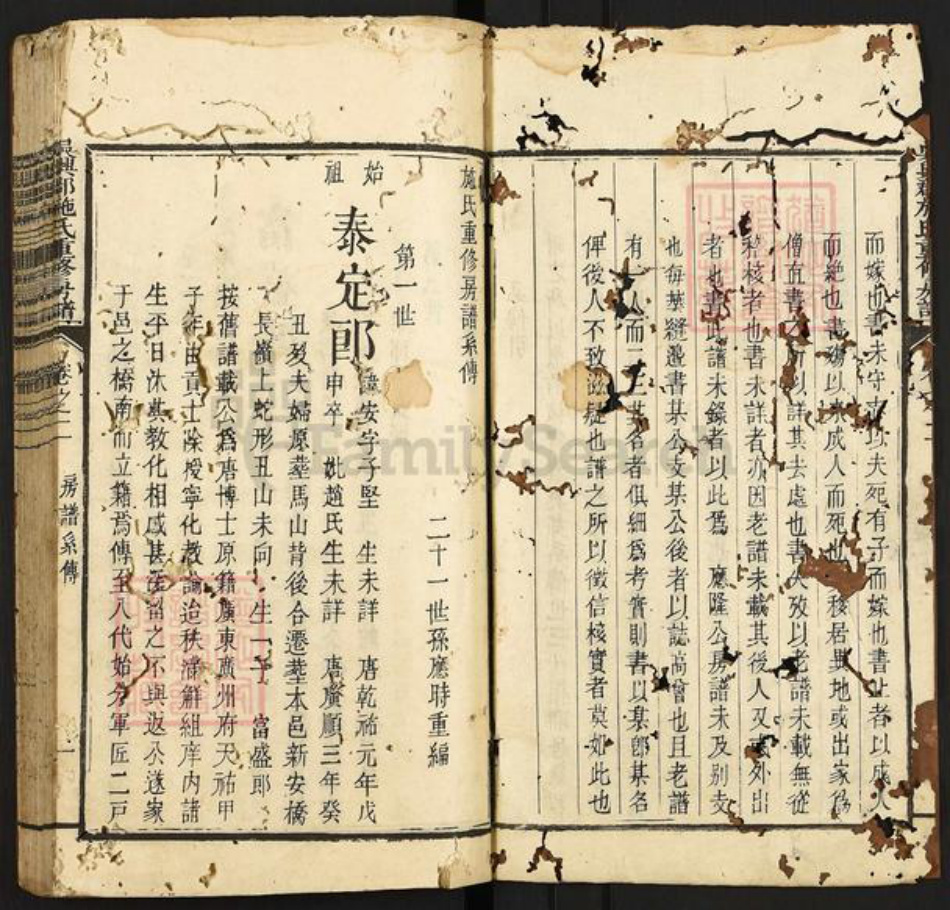 而嫁也書未守志以夫死有子而嫁也書止者以成人
而絶也書殤以未成人而死也 移居異地或出家爲
僧直書之所以詳其去處也書失攷以老譜未載無從
稽核者也書未詳者亦因老譜未載其後人又或外出
者也書此譜未錄者以此舊 應隆公房譜未及别支
也每葉縫邊書某公支某公後者以誌高曾也且老譜
有一人而二三其名者俱細爲考實則書以某郎某名
俾後人不致滋疑也譜之所以徵信核實者莫如此也
施氏重修房譜系傳
二十一世孫應時重編
第一世
始祖
泰定郎 諱安字子堅 生未詳 唐乾祐元年戊
申卒 妣趙氏生未詳 唐廣順三年癸
丑歿夫婦原葬馬山背後合遷葬本邑新安橋
長嶺上蛇形丑山未向 生一子 富盛郎
按舊譜載公爲唐博士原籍廣東廣州府天祐甲
子年由貢士除授寧化教諭迨秩滿解組庠内諸
生平日沐其教化相感甚深留之不與返公遂家
于邑之橋南而立籍焉傳至八代始分軍匠二戸
吳興郡施氏重修房譜
卷之二
房譜系傳
一
FamilySearch